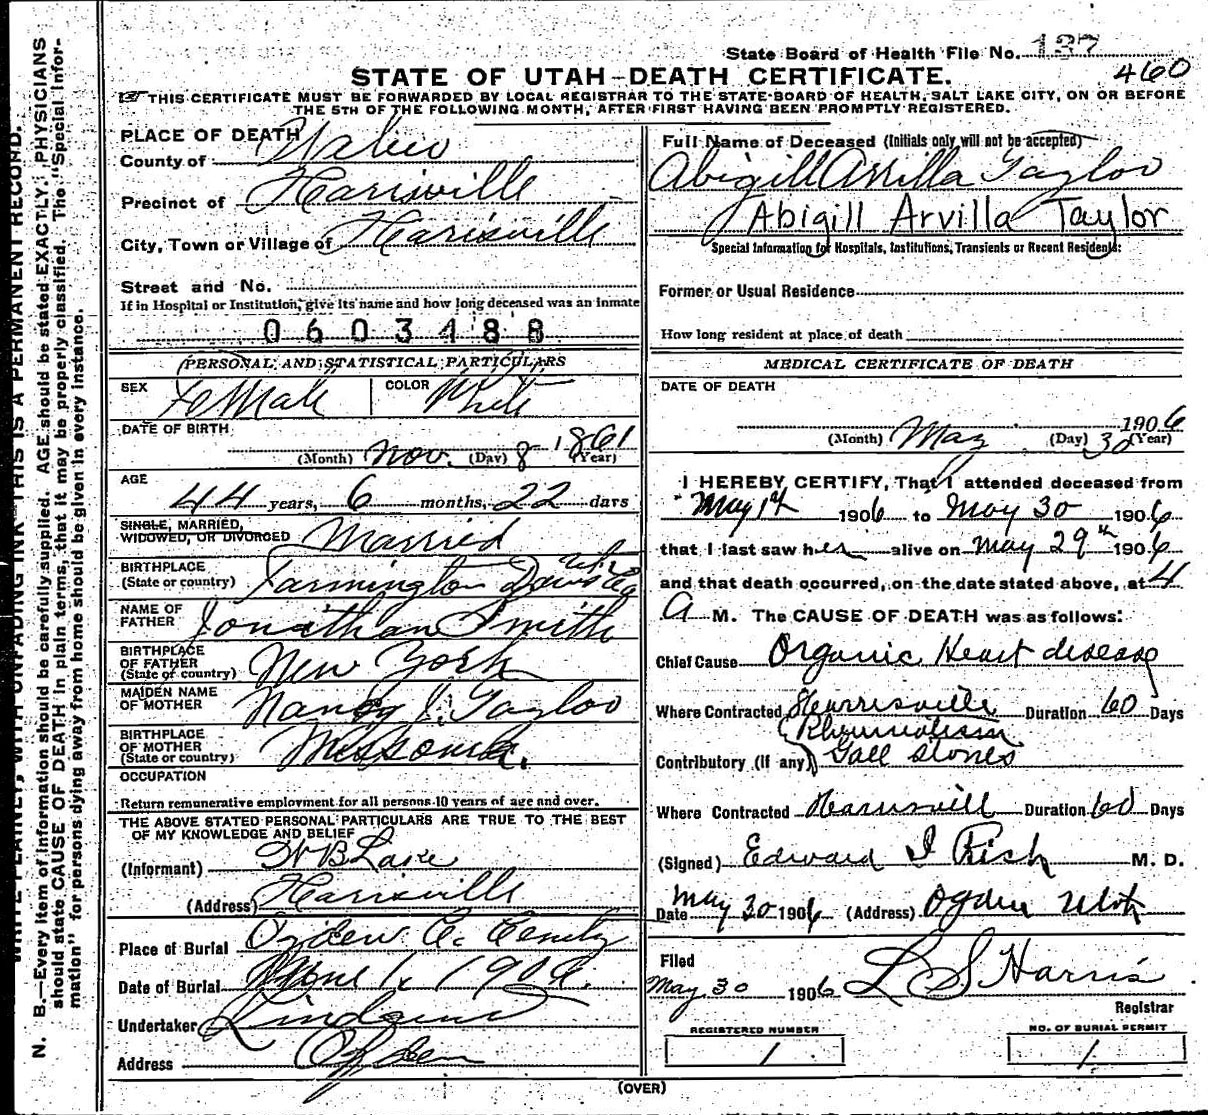 State Board of Health File No. 137
460
STATE OF UTAH—DEATH CERTIFICATE.
THIS CERTIFICATE MUST BE FORWARDED BY LOCAL REGISTRAR TO THE STATE BOARD OF HEALTH, SALT LAKE CITY, ON OR BEFORE
THE 5TH OF THE FOLLOWING MONTH, AFTER FIRST HAVING BEEN PROMPTLY REGISTERED.
N. B.—Every item of information should be carefully supplied. AGE should be stated EXACTLY. PHYSICIANS
should state CAUSE OF DEATH in plain terms, that it may be properly classified. The "Special Infor-
mation" for persons dying away from home should be given in every instance.
WRITE PLAINLY, WITH UNFADING INK—THIS IS A PERMANENT RECORD.
PLACE OF DEATH
County of Weber
Precinct of Harisville
City, Town or Village of Harisville
Street and No.
If in Hospital or Institution, give its name and how long deceased was an inmate
0603488
PERSONAL AND STATISTICAL PARTICULARS
SEX Female COLOR White
DATE OF BIRTH
(Month) Nov. (Day) 8 1861 (Year)
AGE
44 years, 6 months, 22 days
SINGLE, MARRIED,
WIDOWED, OR DIVORCED Married
BIRTHPLACE
(State or country) Farmington Davis Co
NAME OF
FATHER Jonathan Smith
BIRTHPLACE
OF FATHER
(State or country) New York
MAIDEN NAME
OF MOTHER Nancy J. Taylor
BIRTHPLACE
OF MOTHER
(State or country) Missouri.
OCCUPATION
Return remunerative employment for all persons 10 years of age and over.
THE ABOVE STATED PERSONAL PARTICULARS ARE TRUE TO THE BEST
OF MY KNOWLEDGE AND BELIEF
(Informant) W B Lake
(Address) Harisville
Place of Burial Ogden C. Cemty
Date of Burial June 1, 1906.
Undertaker
Address Ogden
Full Name of Deceased (Initials only will not be accepted)
Abigill Arvilla Taylor
Abigill Arvilla Taylor
Special Information for Hospitals, Institutions, Transients or Recent Residents:
Former or Usual Residence
How long resident at place of death
MEDICAL CERTIFICATE OF DEATH
DATE OF DEATH
1906
(Month) May (Day) 30 (Year)
I HEREBY CERTIFY, That I attended deceased from
May 1st 1906 to May 30 1906
that I last saw her alive on May 29th 1906
and that death occurred, on the date stated above, at 4
A M. The CAUSE OF DEATH was as follows:
Chief Cause Organic Heart disease
Where Contracted Harrisville Duration 60 Days
Rheumatism
Contributory (if any) Gall stones
Where Contracted Harrisvill Duration 60 Days
(Signed) Edward I Rich M. D.
Date May 30 1906 (Address) Ogden Utah
Filed
May 30 1906 L S Harris
Registrar
REGISTERED NUMBER
1
NO. OF BURIAL PERMIT
1
(OVER)